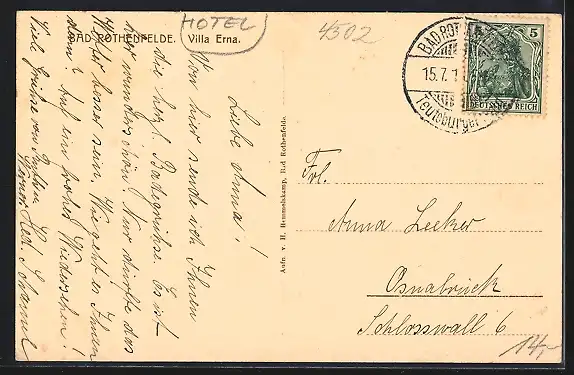 HOTEL
4502
BAD ROTHENFELDE. Villa Erna.
BAD ROT
15.7.1
Teutoburger
5
DEUTSCHES REICH
Liebe Anna!
Von hier sende ich Ihnen
die herzl. Badegrüße. Es ist
hier wunderschön! Nur dürfte das
Wetter besser sein. Wie geht es Ihnen
denn? Auf ein frohes Wiedersehen!
Viele Grüße von
Aufn. v. H. Hemmelskamp, Bad Rothenfelde.
Frl.
Anna Lecker
Osnabrück
Schlosswall 6
14,-